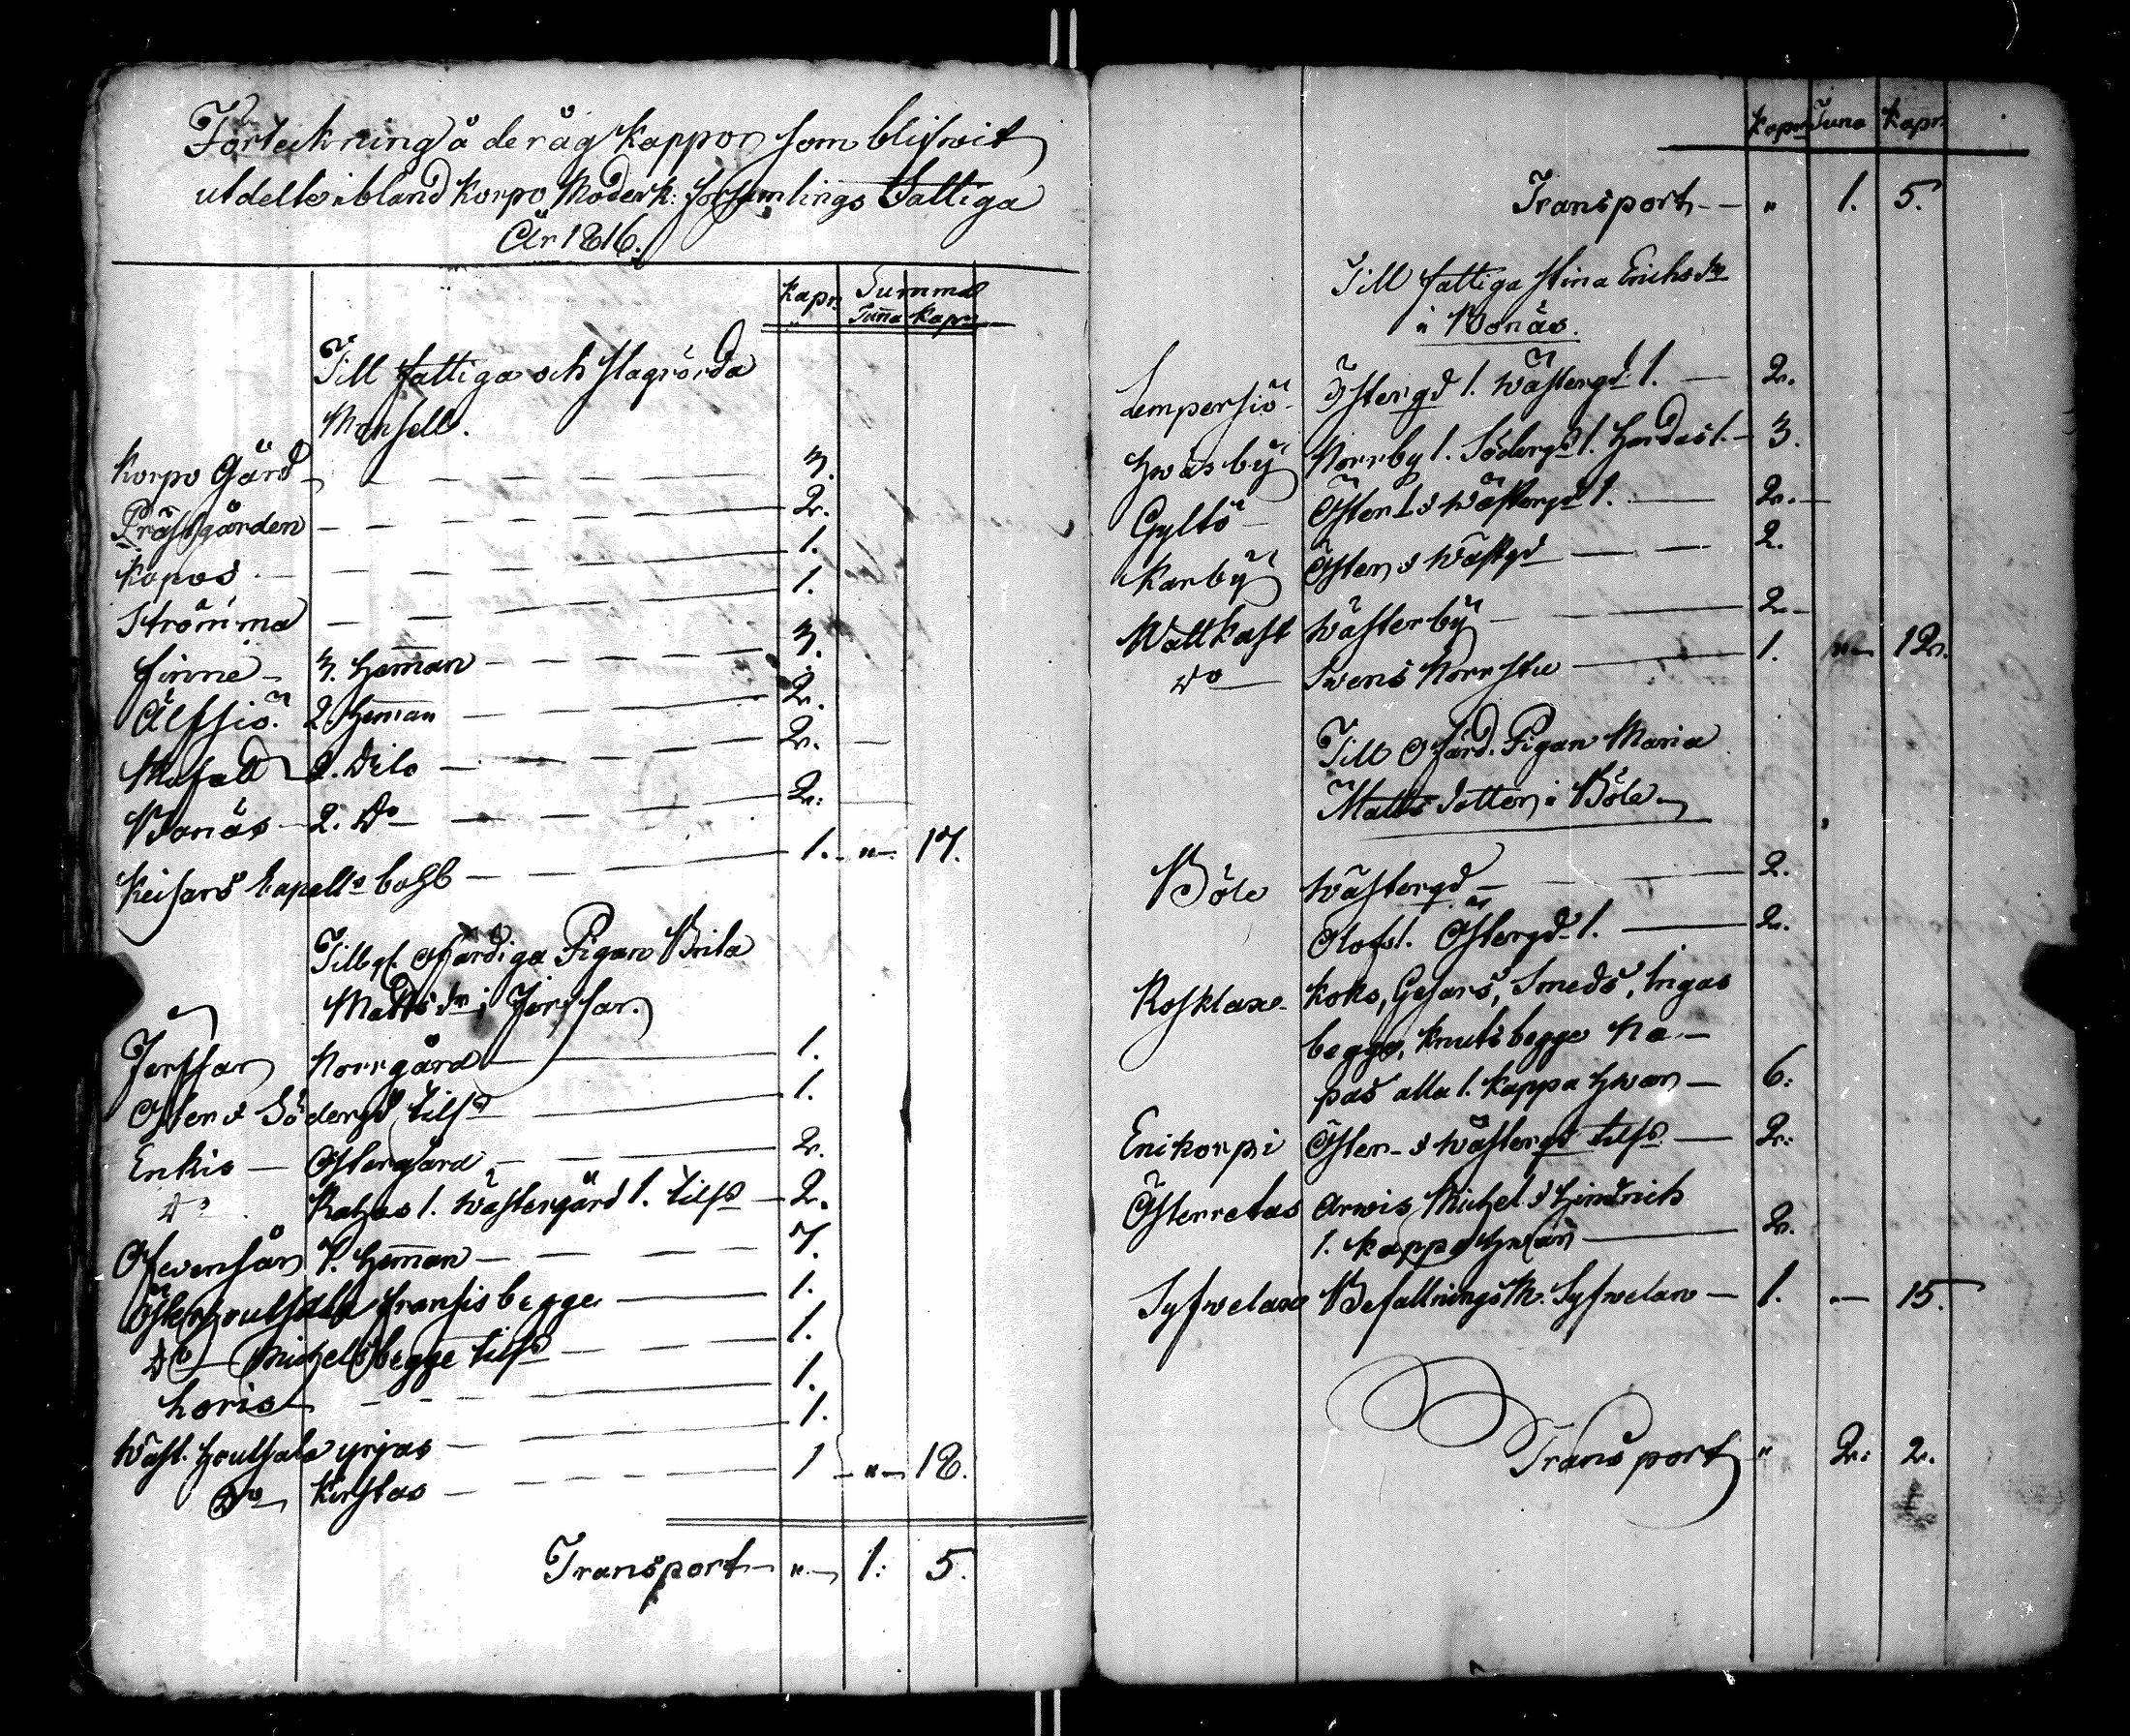 Förteckning å de råg kappor som blifwit
utdelte ibland Korpo Moderk: församlings Fattiga
År 1816.
Kapr. Summa
Tuna Kapr
Till fattiga och slagrörda
Monsell.
Korpo Gård — 3.
Prästgården — 2.
Kopos — 1.
Strömma — 1.
Finne — 3. Heman — 3.
Älfsiö. 2 Heman — 2.
Mufall 2. Dito — 2.
Bonäs — 2. Do — 2:
Keisars Capells bohl — 1. " 17.
Till ofärdiga Pigan Brita
Matts dr i Jerssar.
Jerssar Norrgård — 1.
Öster & Södergd tilsd — 1.
Enkis — Östergård — 2.
Do Katzas 1. Wästergård 1. tilsd — 2.
Ofvensår 7. Heman — 7.
Österhoutsala Fransis begge — 1.
Do — Michels begge tilsd — 1.
Loris — 1.
Wäst. Houtsala yrjas — 1.
Do Kirstas — 1 " 18.
Transport " 1: 5.
Kapr Tuna Kapr.
Transport — " 1. 5.
Till fattiga Stina Erichs dr
i Bonäs.
Lempersiö Östergd 1. Wästergd 1. — 2.
Hwäsby Norrby 1. Södergd 1. Hardas 1. — 3.
Gyltö Öster 1 & Wästergd 1. — 2.
Karby Öster & Wästgd — 2.
Wattkast Wästerby — 2
Do — Swens Norrstu — 1. " 12.
Till ofärd. Pigan Maria
Matts dotter i Böle.
Böle Wästergd — 2.
Olofs 1. Östergd 1. — 2.
Rosklax Koks, Gesars, Smeds, Ingas
begge, Knuts begge Na-
pas alla 1. kappa hwar — 6:
Enikorpi Öster- & Wästergd tilsd — 2:
Österretas Arwis Michel & Hindrich
1. kappa hwar — 2.
Syfwelax BefallningsM. Syfwelan — 1. — 15.
Transport " 2: 2.